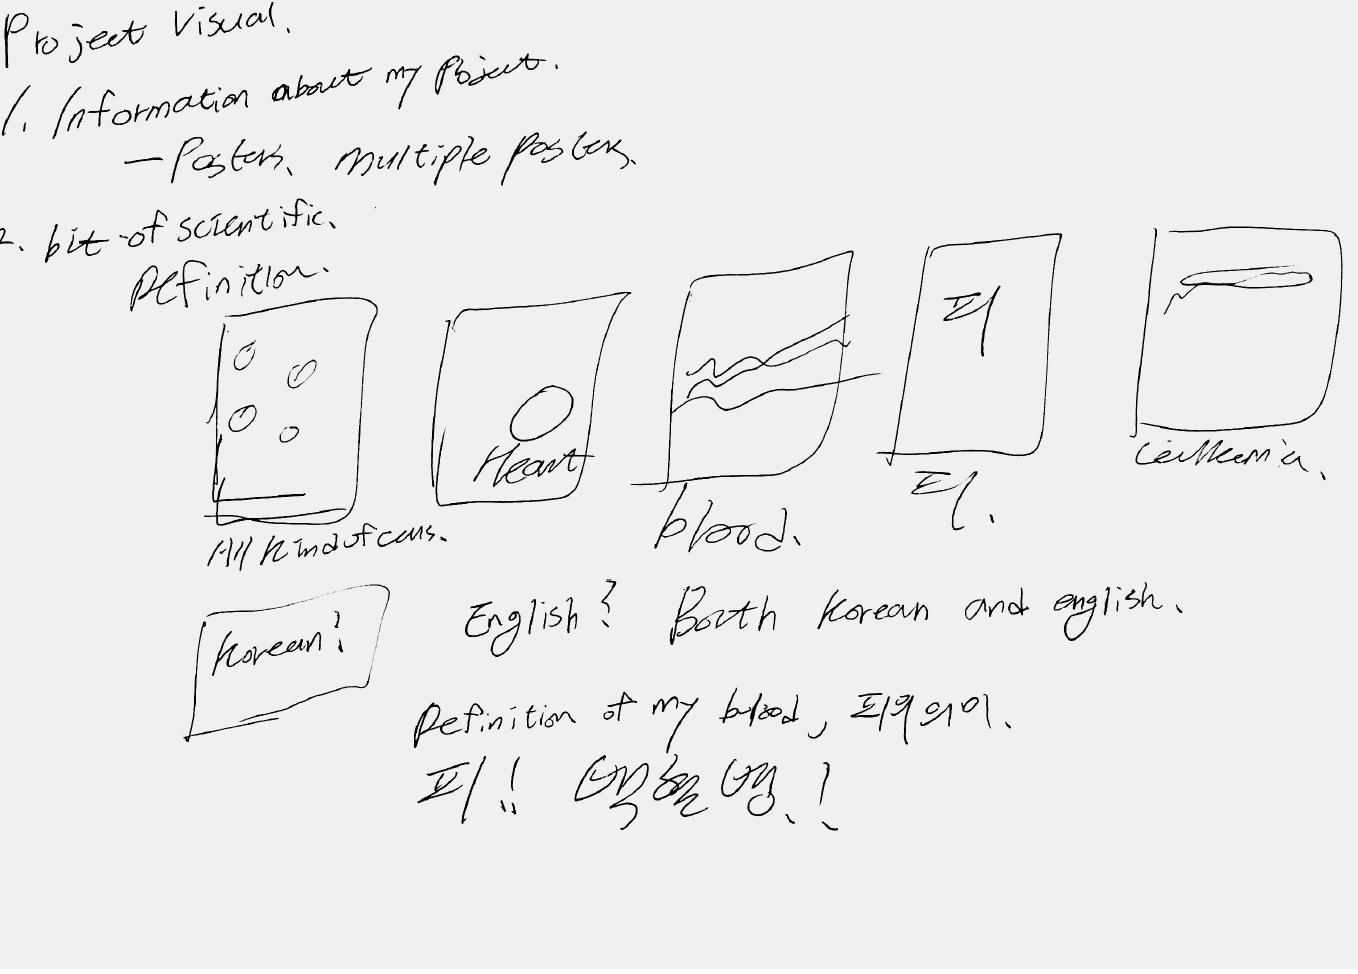 Project Visual.
1. Information about my Project.
— Posters. multiple posters.
2. bit of scientific.
Definition.
피
Heart
All kind of cells.
blood.
피.
Leukemia.
Korean?
English? Both korean and english.
Definition of my blood, 피의 의미.
피!! 백혈병.!